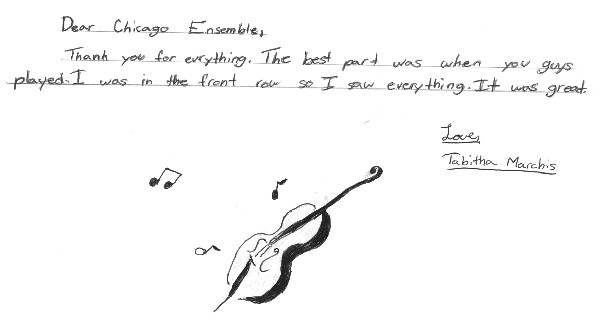 Dear Chicago Ensemble,
Thank you for evrything. The best part was when you guys
played. I was in the front row so I saw everything. It was great.
Love,
Tabitha Marchis